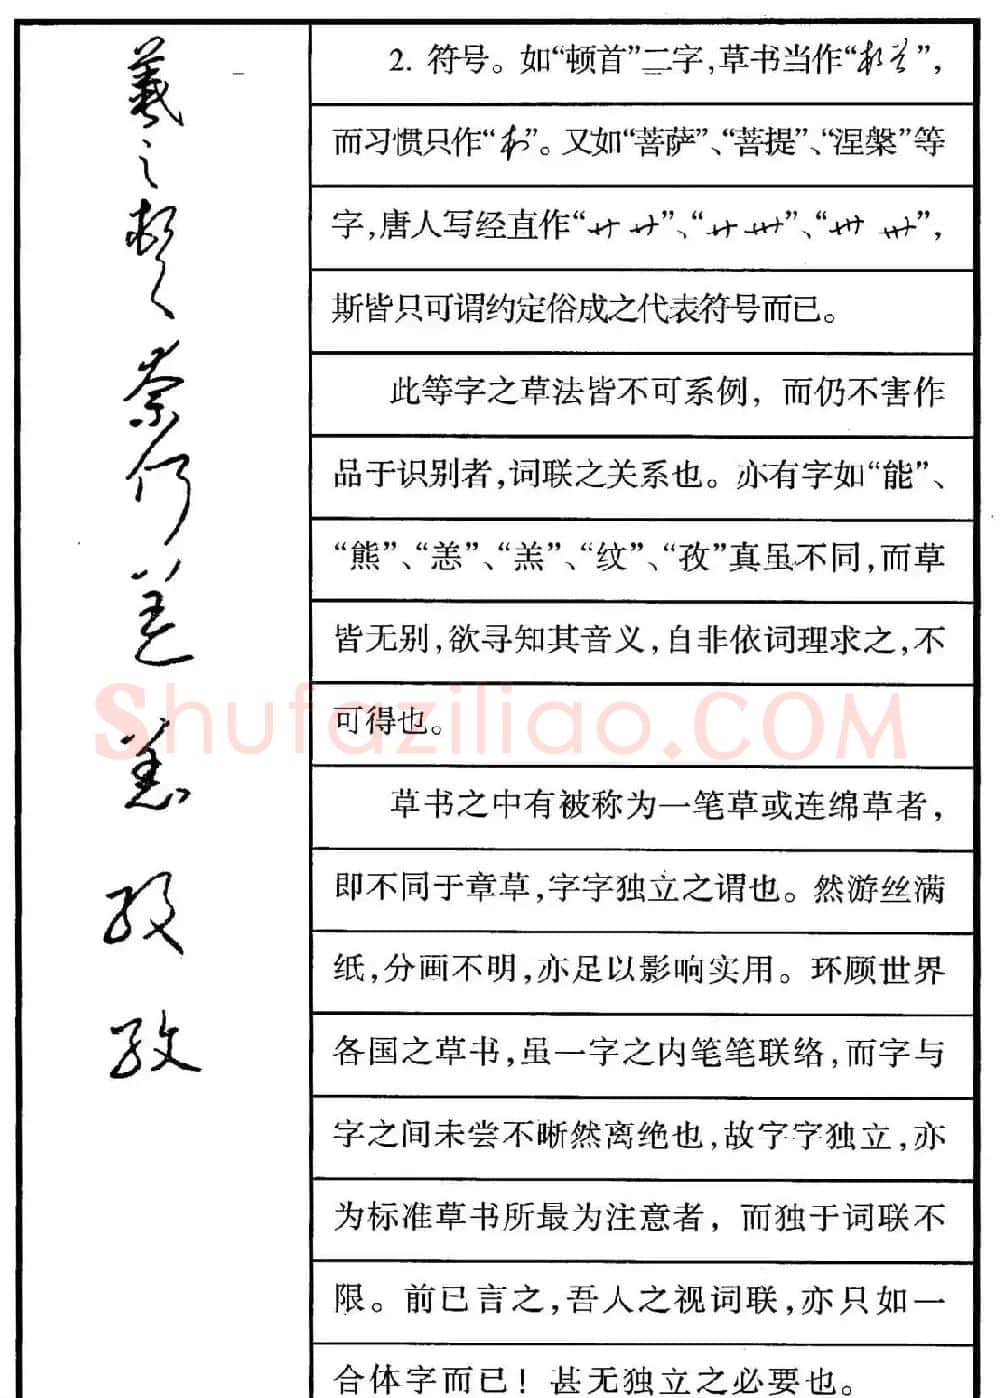 2. 符号。如“顿首”二字,草书当作“”,
而习惯只作“”。又如“菩萨”、“菩提”、“涅槃”等
字,唐人写经直作“”、“”、“”,
斯皆只可谓约定俗成之代表符号而已。
此等字之草法皆不可系例，而仍不害作
品于识别者,词联之关系也。亦有字如“能”、
“熊”、“恙”、“羔”、“纹”、“孜”真虽不同,而草
皆无别,欲寻知其音义,自非依词理求之,不
可得也。
草书之中有被称为一笔草或连绵草者,
即不同于章草,字字独立之谓也。然游丝满
纸,分画不明,亦足以影响实用。环顾世界
各国之草书,虽一字之内笔笔联络,而字与
字之间未尝不晰然离绝也,故字字独立,亦
为标准草书所最为注意者，而独于词联不
限。前已言之,吾人之视词联,亦只如一
合体字而已！甚无独立之必要也。
Shufaziliao.COM